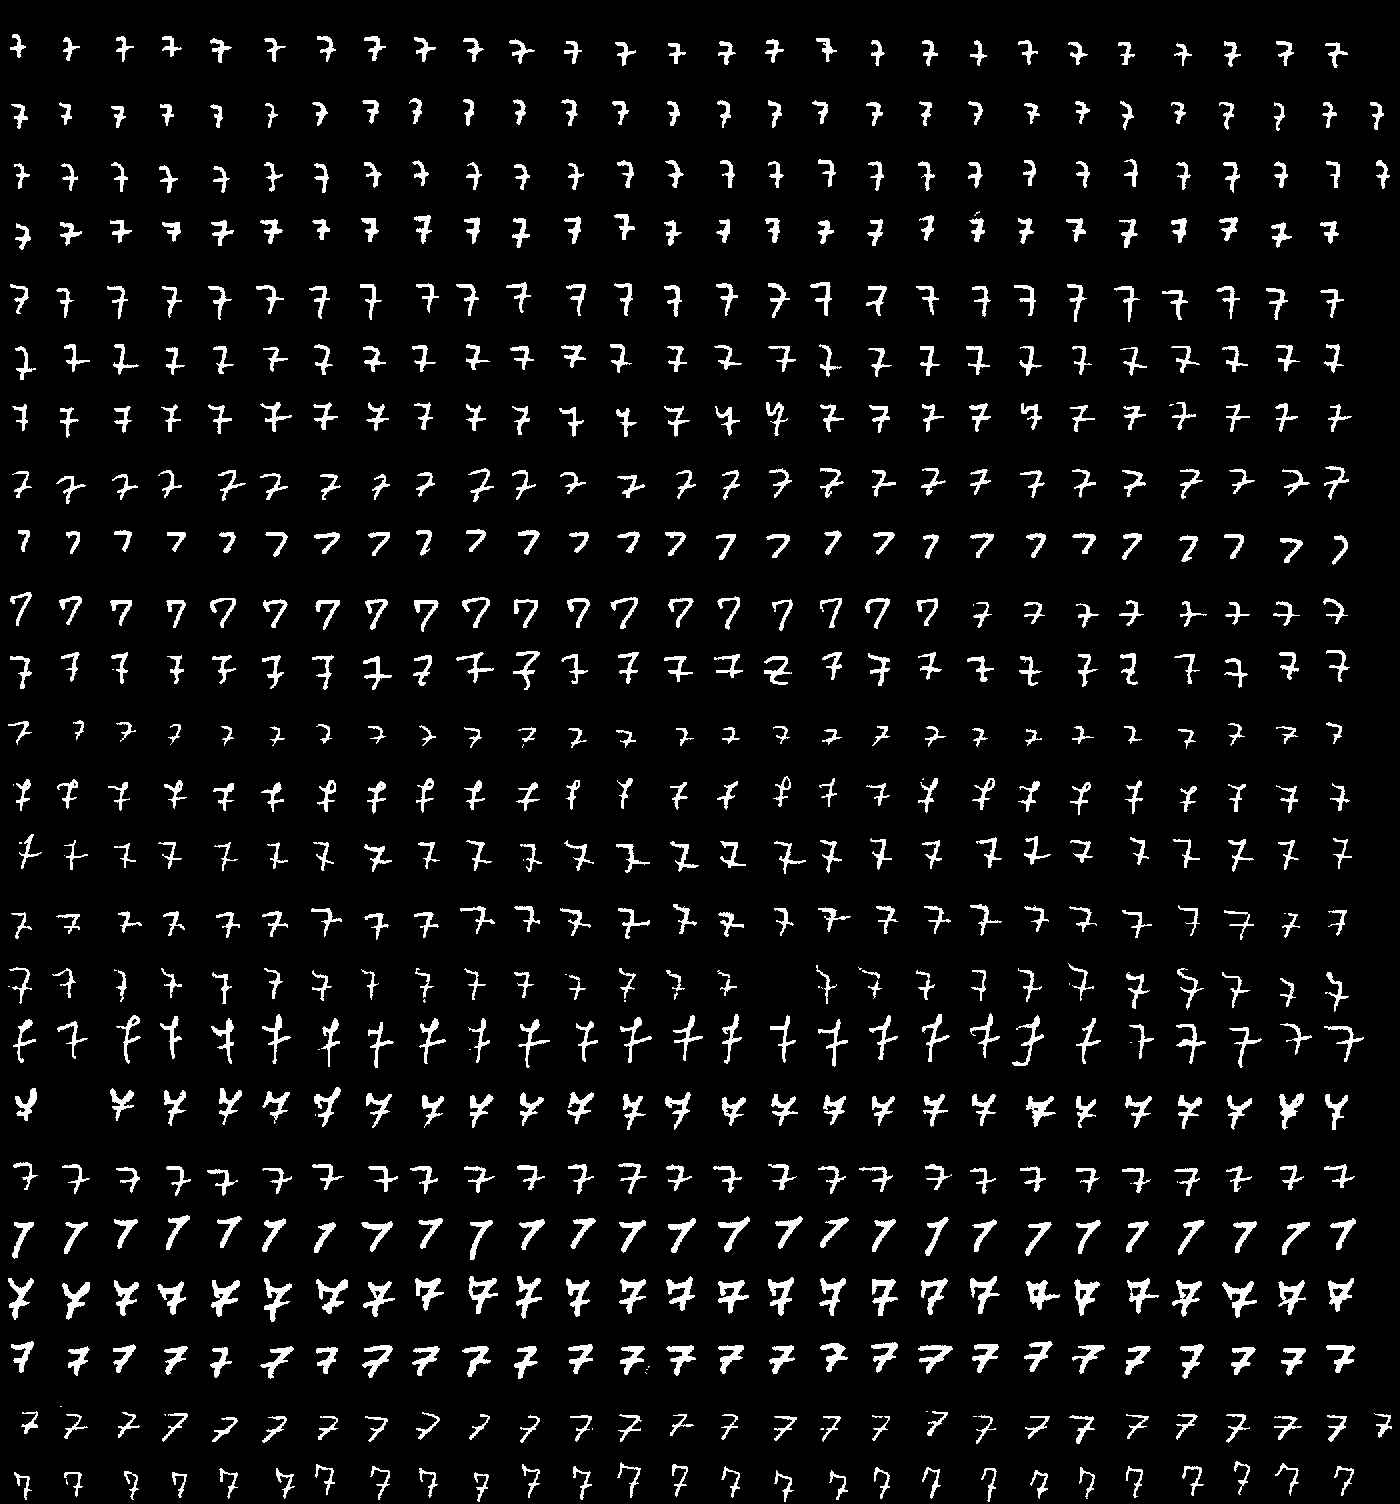 7 7 7 7 7 7 7 7 7 7 7 7 7 7 7 7 7 7 7 7 7 7 7 7 7 7 7
7 7 7 7 7 7 7 7 7 7 7 7 7 7 7 7 7 7 7 7 7 7 7 7 7 7 7 7
7 7 7 7 7 7 7 7 7 7 7 7 7 7 7 7 7 7 7 7 7 7 7 7 7 7 7 7
7 7 7 7 7 7 7 7 7 7 7 7 7 7 7 7 7 7 7 7 7 7 7 7 7 7 7
7 7 7 7 7 7 7 7 7 7 7 7 7 7 7 7 7 7 7 7 7 7 7 7 7 7 7
7 7 7 7 7 7 7 7 7 7 7 7 7 7 7 7 7 7 7 7 7 7 7 7 7 7 7
7 7 7 7 7 7 7 7 7 7 7 7 7 7 7 7 7 7 7 7 7 7 7 7 7 7 7
7 7 7 7 7 7 7 7 7 7 7 7 7 7 7 7 7 7 7 7 7 7 7 7 7 7 7
7 7 7 7 7 7 7 7 7 7 7 7 7 7 7 7 7 7 7 7 7 7 7 7 7 7 7
7 7 7 7 7 7 7 7 7 7 7 7 7 7 7 7 7 7 7 7 7 7 7 7 7 7 7
7 7 7 7 7 7 7 7 7 7 7 7 7 7 7 7 7 7 7 7 7 7 7 7 7 7 7
7 7 7 7 7 7 7 7 7 7 7 7 7 7 7 7 7 7 7 7 7 7 7 7 7 7 7
7 7 7 7 7 7 7 7 7 7 7 7 7 7 7 7 7 7 7 7 7 7 7 7 7 7 7
7 7 7 7 7 7 7 7 7 7 7 7 7 7 7 7 7 7 7 7 7 7 7 7 7 7 7
7 7 7 7 7 7 7 7 7 7 7 7 7 7 7 7 7 7 7 7 7 7 7 7 7 7 7
7 7 7 7 7 7 7 7 7 7 7 7 7 7 7 7 7 7 7 7 7 7 7 7 7 7
7 7 7 7 7 7 7 7 7 7 7 7 7 7 7 7 7 7 7 7 7 7 7 7 7 7 7
7 7 7 7 7 7 7 7 7 7 7 7 7 7 7 7 7 7 7 7 7 7 7 7 7 7
7 7 7 7 7 7 7 7 7 7 7 7 7 7 7 7 7 7 7 7 7 7 7 7 7 7 7
7 7 7 7 7 7 7 7 7 7 7 7 7 7 7 7 7 7 7 7 7 7 7 7 7 7 7
7 7 7 7 7 7 7 7 7 7 7 7 7 7 7 7 7 7 7 7 7 7 7 7 7 7 7
7 7 7 7 7 7 7 7 7 7 7 7 7 7 7 7 7 7 7 7 7 7 7 7 7 7 7
7 7 7 7 7 7 7 7 7 7 7 7 7 7 7 7 7 7 7 7 7 7 7 7 7 7 7 7
7 7 7 7 7 7 7 7 7 7 7 7 7 7 7 7 7 7 7 7 7 7 7 7 7 7 7